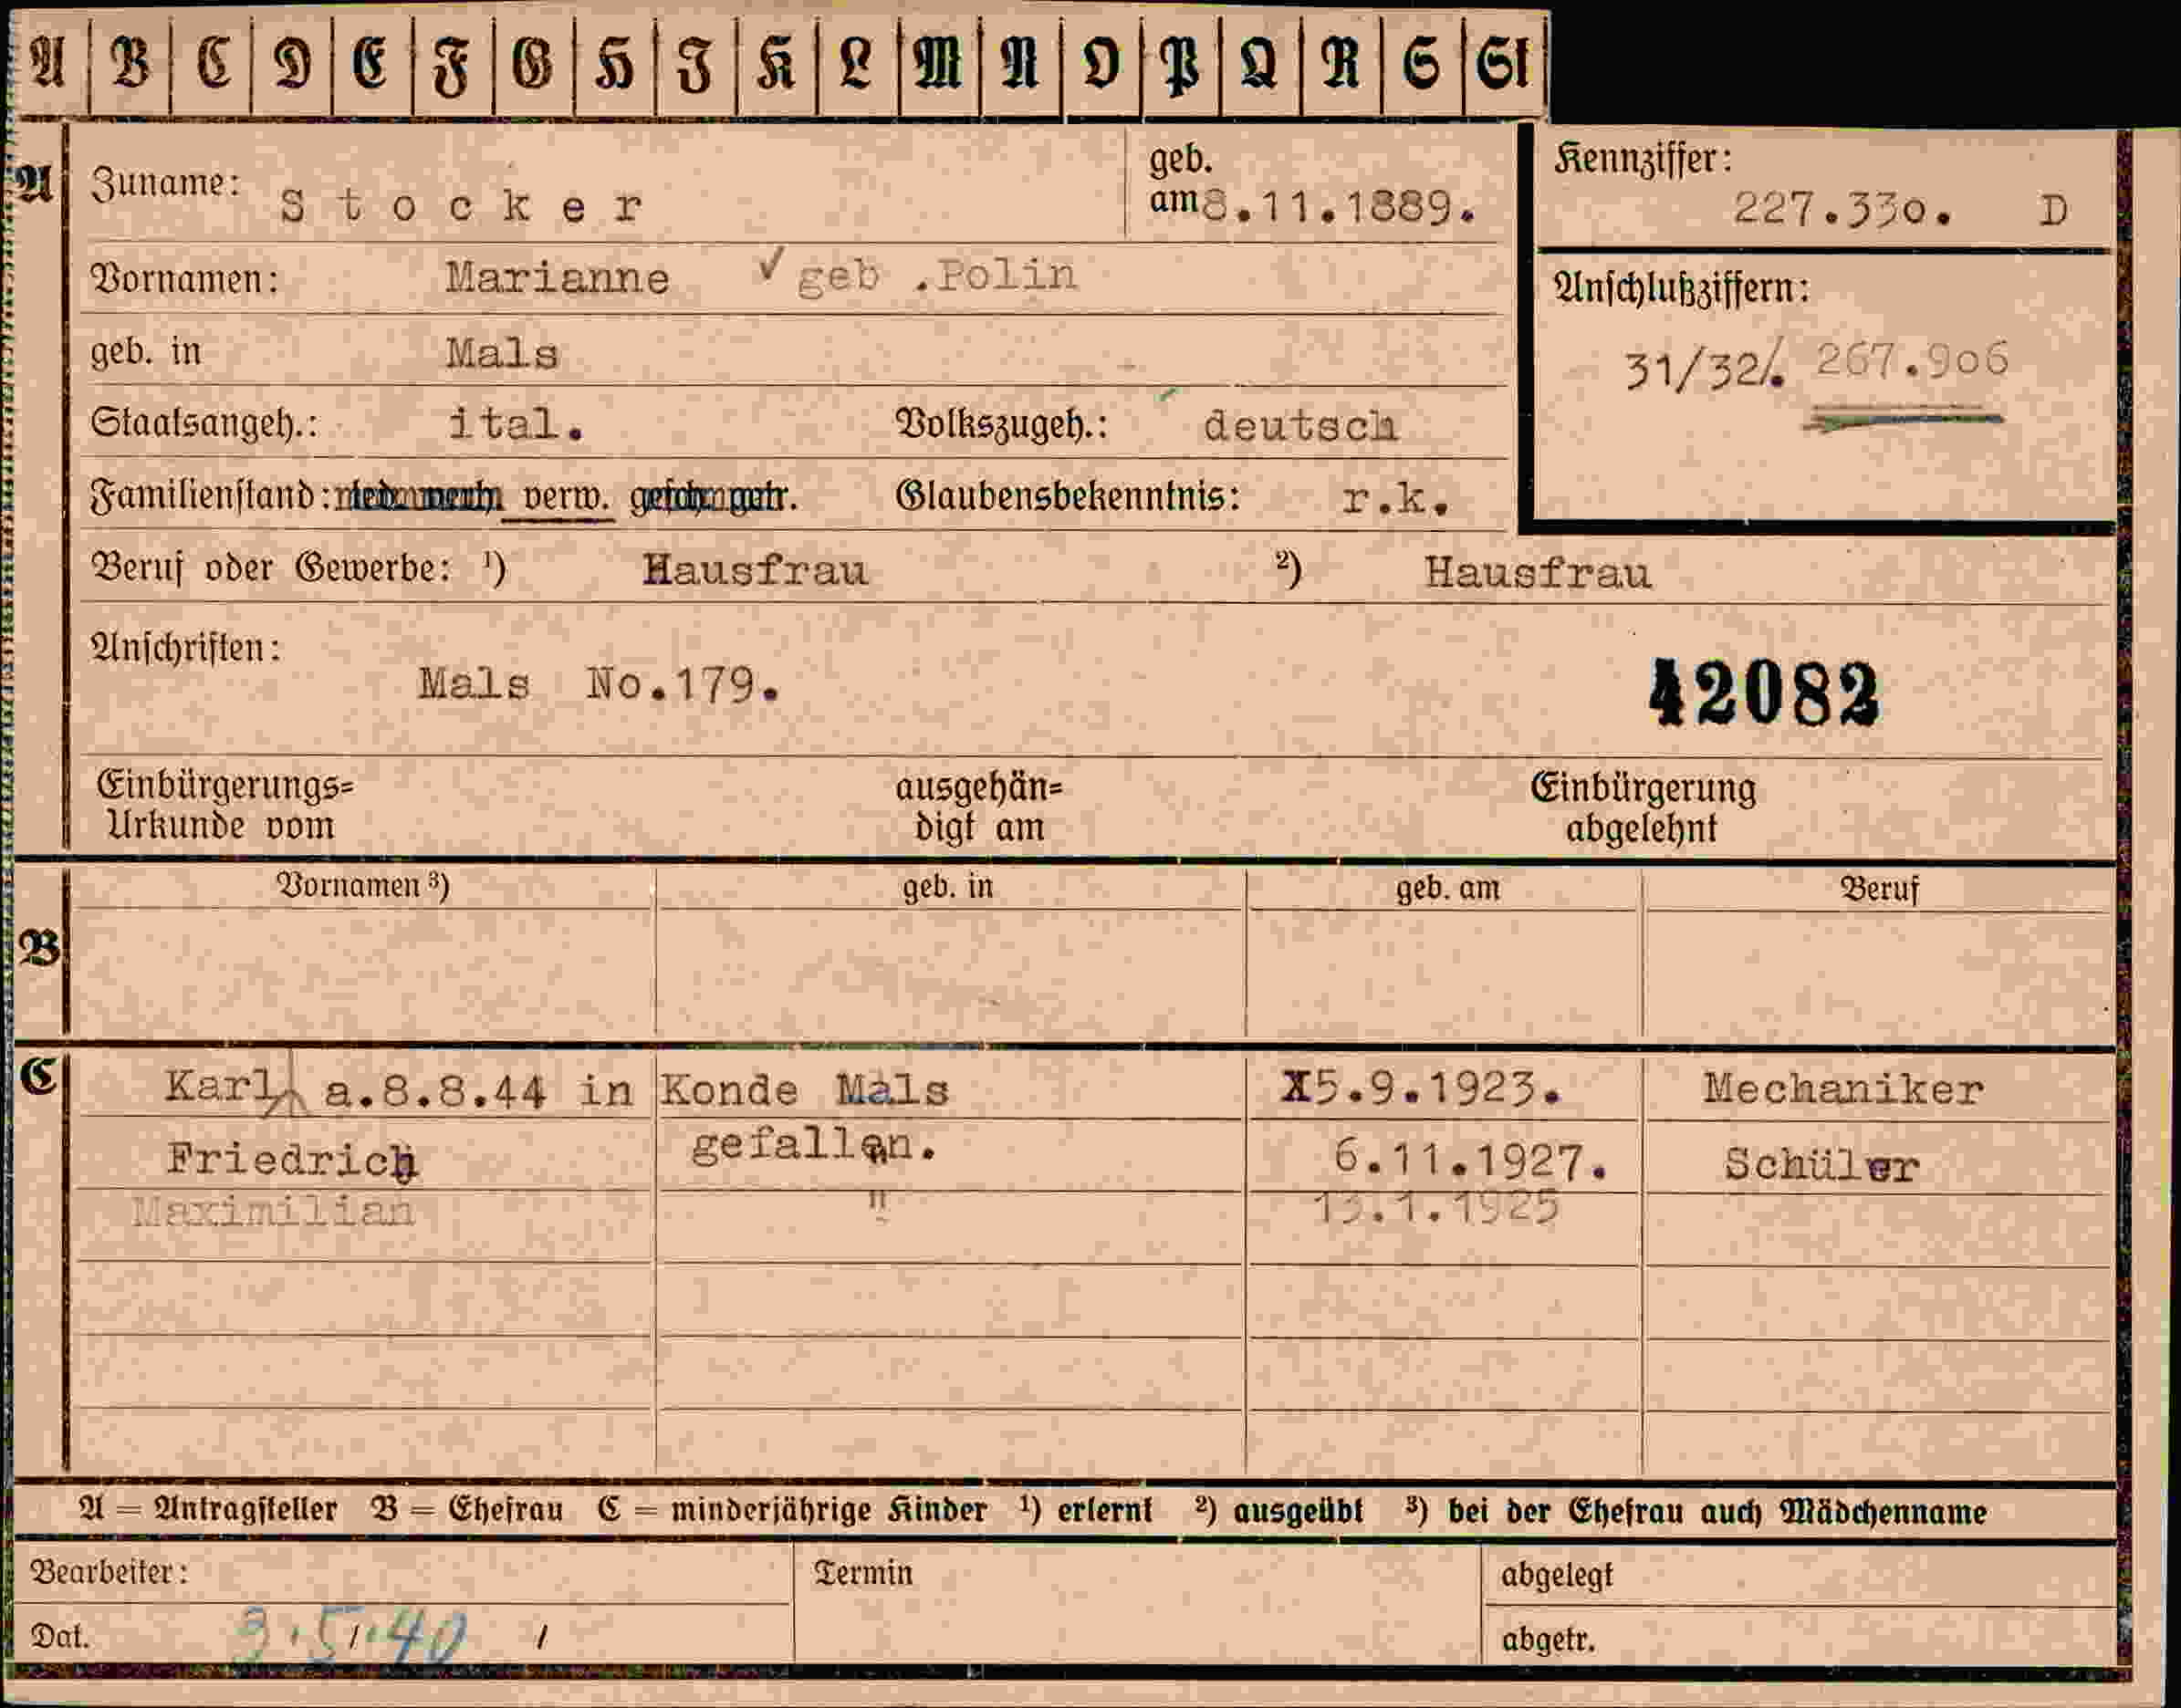 A B C D E F G H I K L M N O P Q R S St
A Zuname: Stocker geb. am 8.11.1889. Kennziffer: 227.330. D
Vornamen: Marianne ✓ geb .Polin
Anschlußziffern:
31/32/. 267.906
geb. in Mals
Staatsangeh.: ital. Volkszugeh.: deutsch
Familienstand: verw. gesch. getr. Glaubensbekenntnis: r.k.
Beruf oder Gewerbe: ¹) Hausfrau ²) Hausfrau
Anschriften:
Mals No.179. 42082
Einbürgerungs= Urkunde vom ausgehän= digt am Einbürgerung abgelehnt
Vornamen ³) geb. in geb. am Beruf
B
C Karl a.8.8.44 in Konde Mals X5.9.1923. Mechaniker
gefallen.
Friedrich 6.11.1927. Schüler
Maximilian " 13.1.1925
A = Antragsteller B = Ehefrau C = minderjährige Kinder ¹) erlernt ²) ausgeübt ³) bei der Ehefrau auch Mädchenname
Bearbeiter: Termin abgelegt
Dat. 3.5.40 / abgetr.